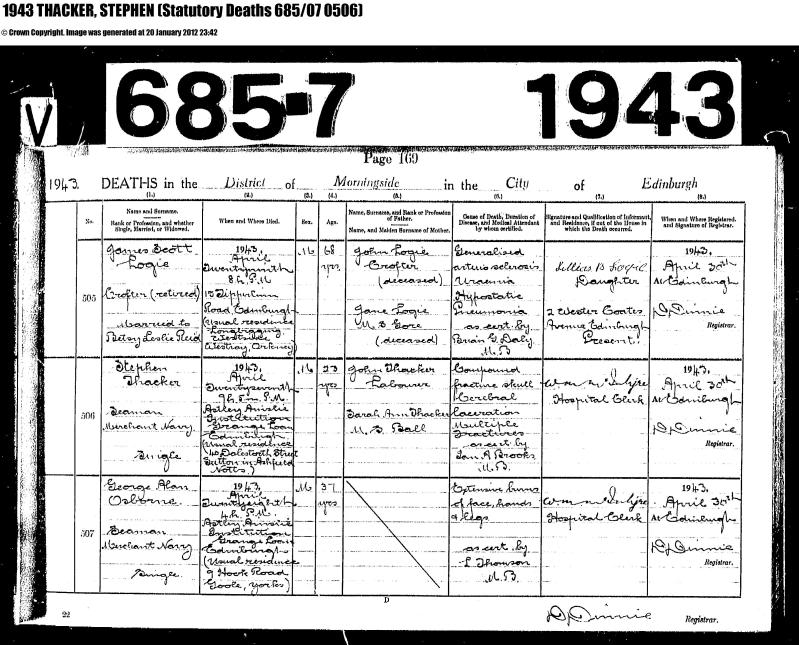 1943 THACKER, STEPHEN (Statutory Deaths 685/07 0506)
© Crown Copyright. Image was generated at 20 January 2012 23:42
V
685-7 1943
Page 169
1943. DEATHS in the District of Morningside in the City of Edinburgh
(1.) (2.) (3.) (4.) (5.) (6.) (7.) (8.)
No.
Name and Surname.
Rank or Profession, and whether
Single, Married, or Widowed.
When and Where Died.
Sex.
Age.
Name, Surname, and Rank or Profession
of Father.
Name, and Maiden Surname of Mother.
Cause of Death, Duration of
Disease, and Medical Attendant
by whom certified.
Signature and Qualification of Informant,
and Residence, if out of the House in
which the Death occurred.
When and Where Registered,
and Signature of Registrar.
505
James Scott
Logie
Crofter (retired)
Married to
Betsy Leslie Reid
1943,
April
Twentyninth
8 h. P.M.
15 Tipperlinn
Road, Edinburgh
(Usual residence
Westray, Orkney)
M
68
yrs
John Logie
Crofter
(deceased)
Jane Logie
M.S. Gore
(deceased)
Generalised
arterio sclerosis
Uraemia
Hypostatic
Pneumonia
as cert. by
Brian G. Daly
M.B.
Daughter
2 Wester Coates
Avenue Edinburgh
Present.
1943.
April 30th
At Edinburgh
D Dinnie
Registrar.
506
Stephen
Thacker
Seaman
Merchant Navy
Single
1943,
April
Twentyseventh
9 h. 5 m. P.M.
Astley Ainslie
Institution
Grange Loan
Edinburgh
(Usual residence
40 Dalestorth Street
Sutton in Ashfield
Notts.)
M
23
yrs
John Thacker
Labourer
Sarah Ann Thacker
M.S. Ball
Compound
fracture skull
Cerebral
laceration
Multiple
Fractures
as cert. by
Ian. A. Brooks
M.B.
Hospital Clerk
1943.
April 30th
At Edinburgh
D Dinnie
Registrar.
507
George Alan
Osborne
Seaman
Merchant Navy
Single.
1943,
April
Twentyeighth
4 h. P.M.
Astley Ainslie
Institution
Grange Loan
Edinburgh
(Usual residence
9 Hook Road
Goole, Yorks)
M
37
yrs
Extensive burns
of face, hands
& legs
as cert. by
L Thomson
M.B.
Hospital Clerk
1943.
April 30th
At Edinburgh
D Dinnie
Registrar.
22
D
D Dinnie Registrar.